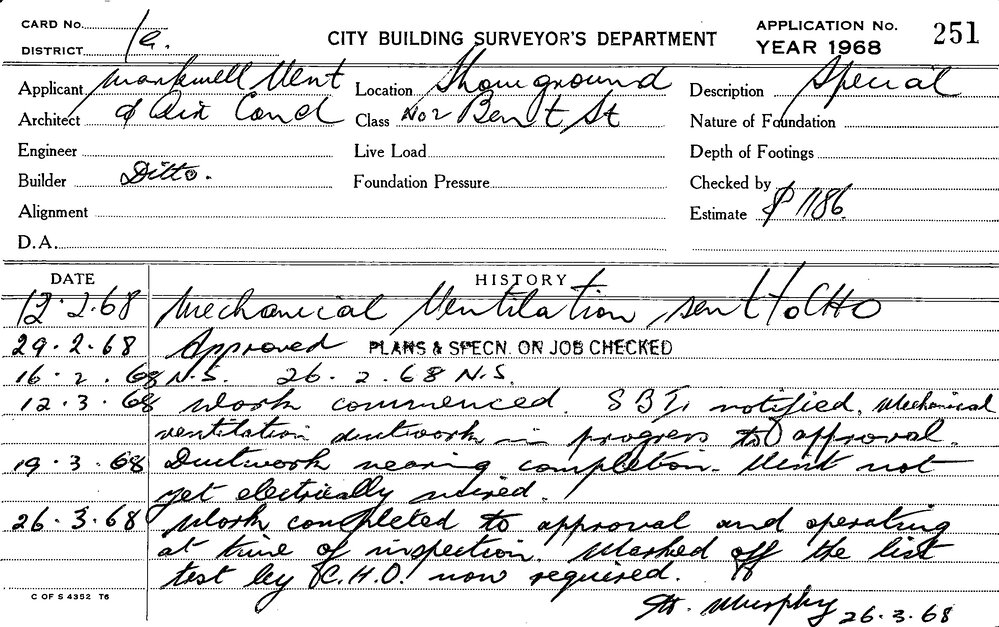 CARD No. 1a. CITY BUILDING SURVEYOR'S DEPARTMENT APPLICATION No. 251
DISTRICT YEAR 1968
Applicant Markwell Vent Location Showground Description Special
Architect & Air Cond Class No 2 Bent St Nature of Foundation
Engineer Live Load Depth of Footings
Builder Ditto. Foundation Pressure Checked by
Alignment Estimate $1186.
D.A.
DATE HISTORY
12.2.68 Mechanical Ventilation sent to CHO
29.2.68 Approved PLANS & SPECN. ON JOB CHECKED
16.2.68 N.S. 26.2.68 N.S.
12.3.68 Work commenced. SBI notified, Mechanical
ventilation ductwork in progress to approval.
19.3.68 Ductwork nearing completion. Unit not
yet electrically wired.
26.3.68 Work completed to approval and operating
at time of inspection. Marked off the list
test by C.H.O. now required.
Murphy 26.3.68
C OF S 4352 T6